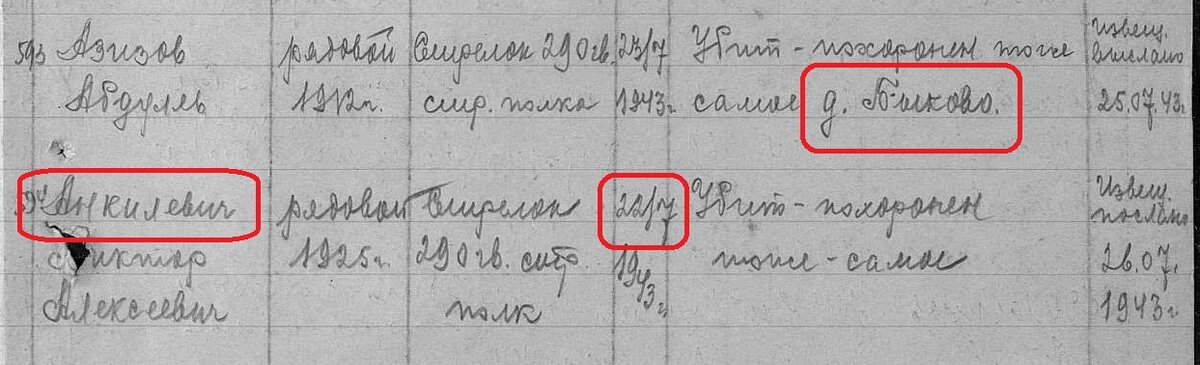 593 Азизов рядовой Стрелок 290 гв. 23/7 Убит - похоронен тоже Извещ. выслано
Абдулль 1912 г. стр. полка 1943 г. самое д. Быково. 25.07.43 г.
594 Анкилевич рядовой Стрелок 22/7 Убит - похоронен Извещ. послано
Виктор 1925 г. 290 гв. стр. 1943 г. тоже - самое 26.07.
Алексеевич полк 1943 г